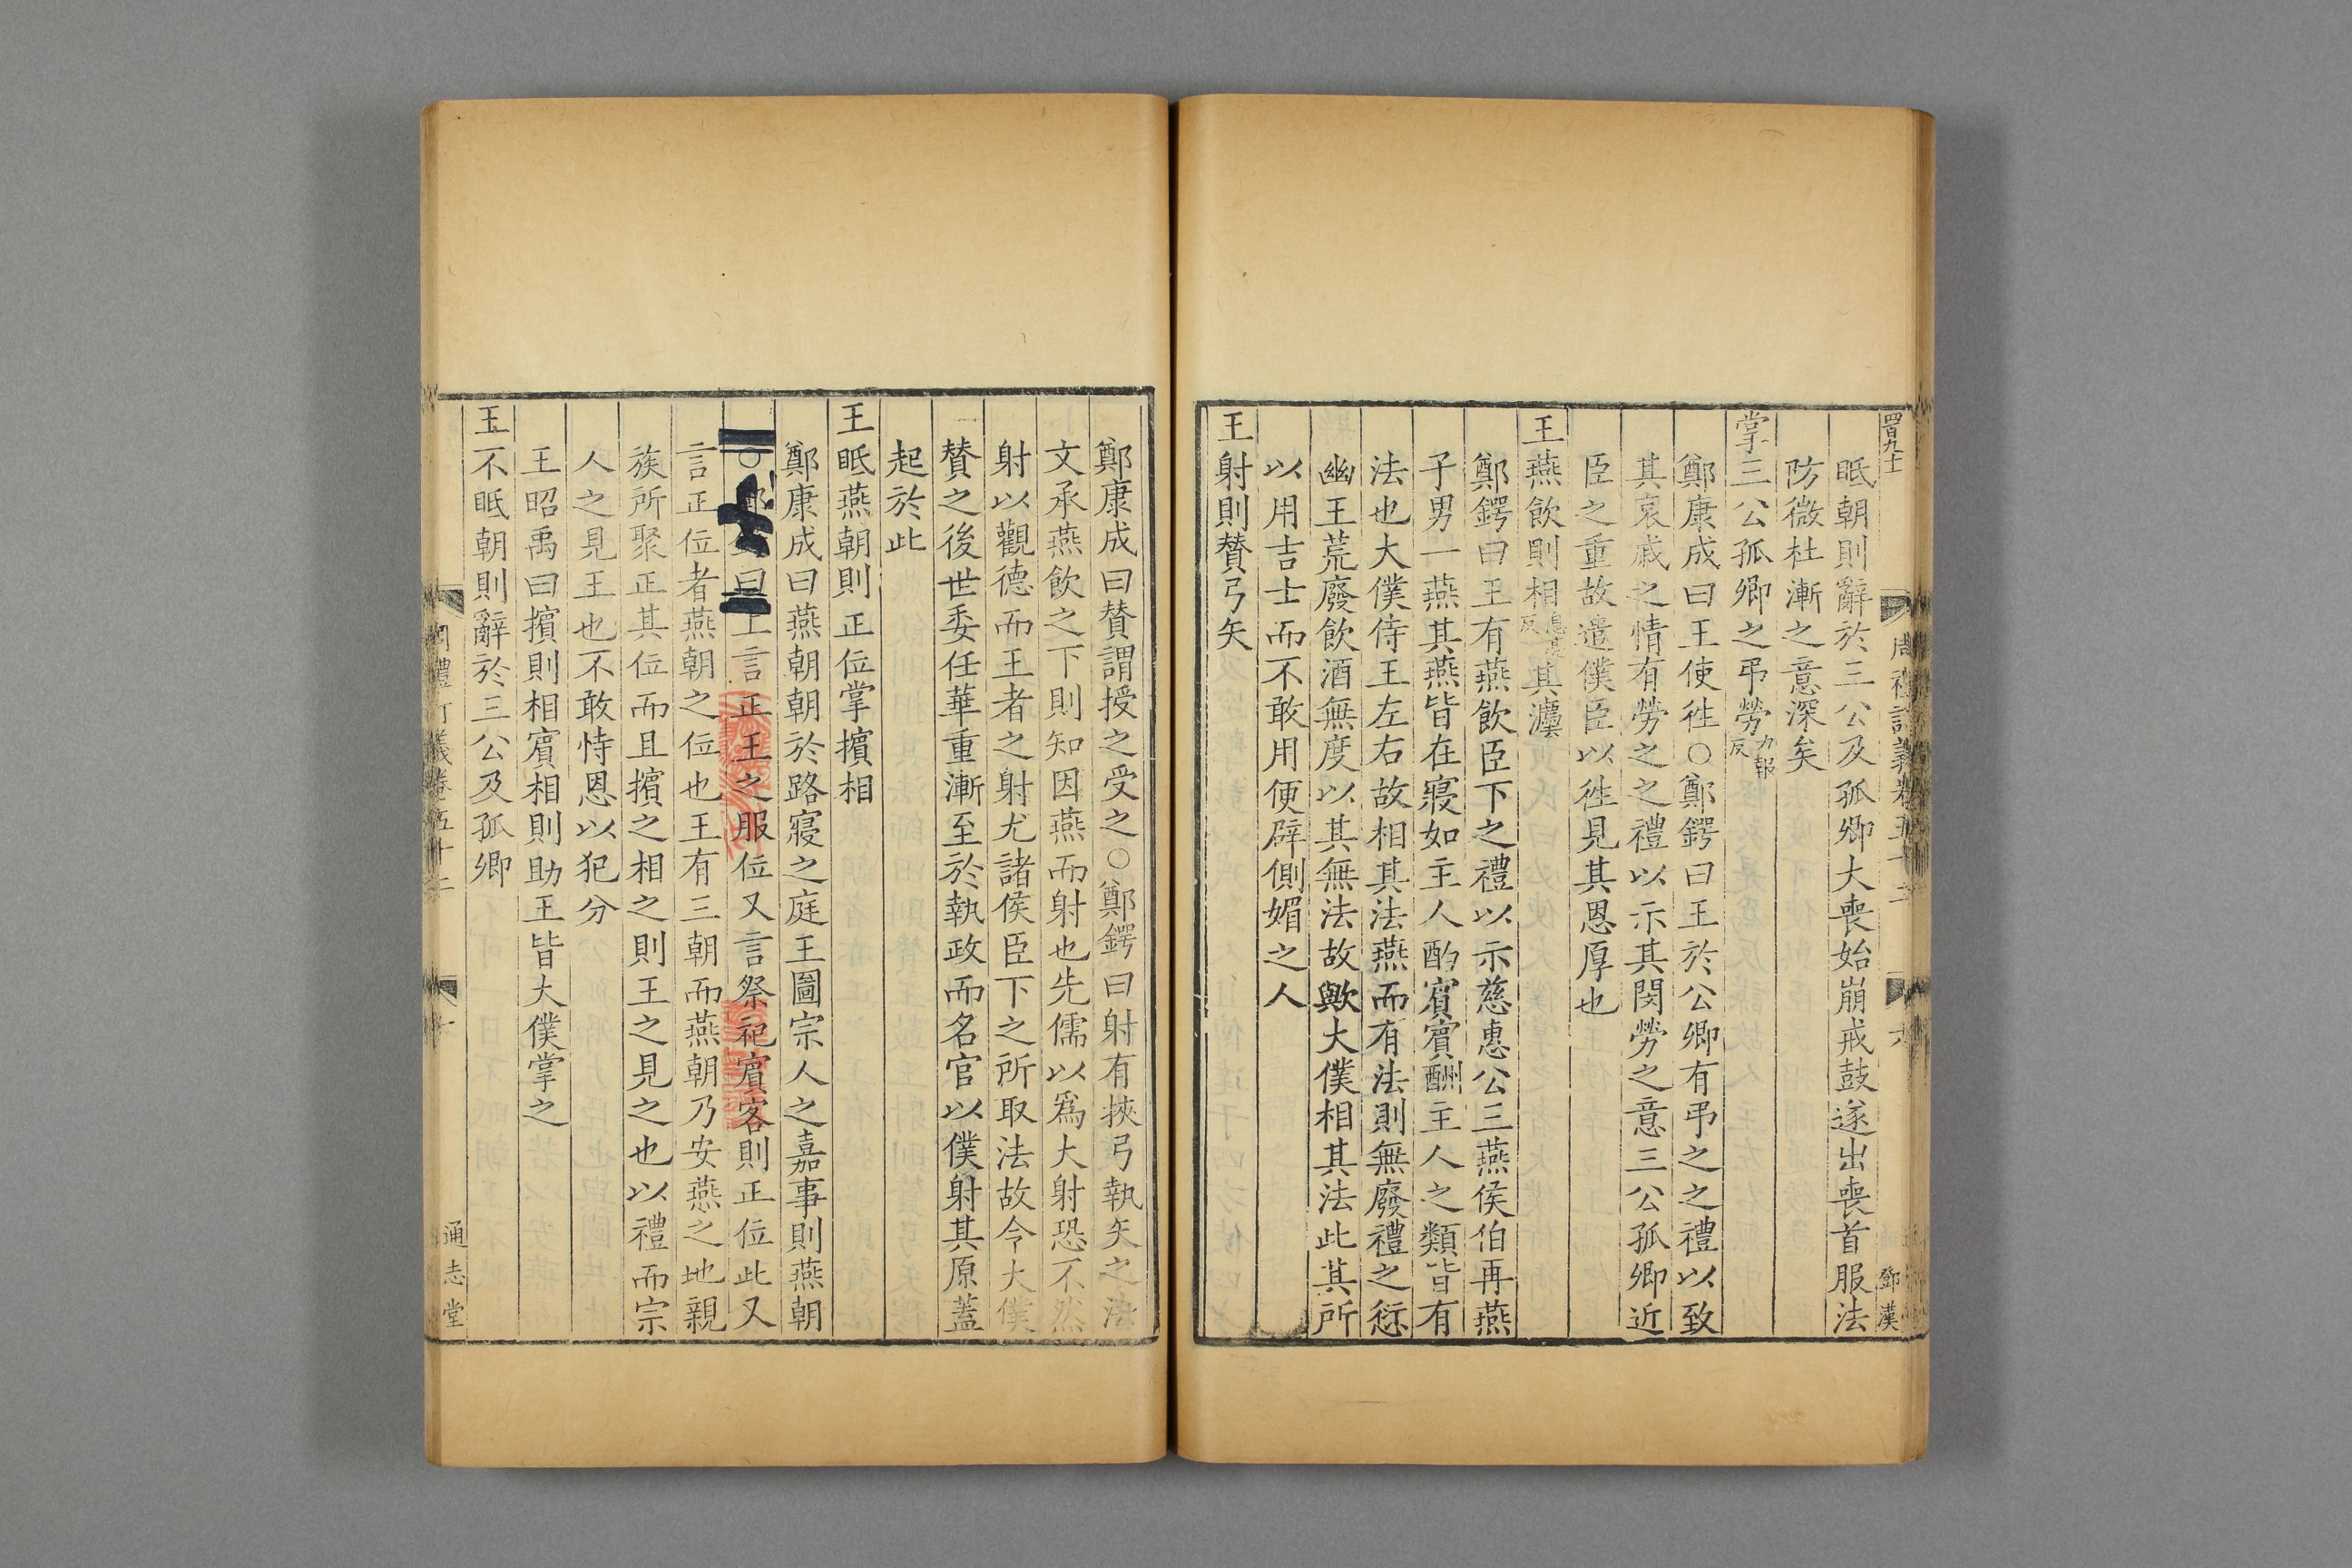 四百九十
周禮訂義卷五十二
六
鄧漢
眡朝則辭於三公及孤卿大喪始崩戒鼓遂出喪首服法
防微杜漸之意深矣
掌三公孤卿之弔勞力報反
鄭康成曰王使徃○鄭鍔曰王於公卿有弔之之禮以致
其哀戚之情有勞之之禮以示其閔勞之意三公孤卿近
臣之重故遣僕臣以徃見其恩厚也
王燕飲則相息亮反其灋
鄭鍔曰王有燕飲臣下之禮以示慈惠公三燕侯伯再燕
子男一燕其燕皆在寢如主人酌賓賓酬主人之類皆有
法也大僕侍王左右故相其法燕而有法則無廢禮之愆
幽王荒廢飲酒無度以其無法故歟大僕相其法此其所
以用吉士而不敢用便辟側媚之人
王射則贊弓矢
鄭康成曰贊謂授之受之○鄭鍔曰射有挾弓執矢之法
文承燕飲之下則知因燕而射也先儒以爲大射恐不然
射以觀德而王者之射尤諸侯臣下之所取法故令大僕
贊之後世委任華重漸至於執政而名官以僕射其原蓋
起於此
王眡燕朝則正位掌擯相
鄭康成曰燕朝朝於路寢之庭王圖宗人之嘉事則燕朝
○鄭曰上言正王之服位又言祭祀賓客則正位此又
言正位者燕朝之位也王有三朝而燕朝乃安燕之地親
族所聚正其位而且擯之相之則王之見之也以禮而宗
人之見王也不敢恃恩以犯分
王昭禹曰擯則相賓相則助王皆大僕掌之
王不眡朝則辭於三公及孤卿
周禮訂義卷五十二
七
通志堂